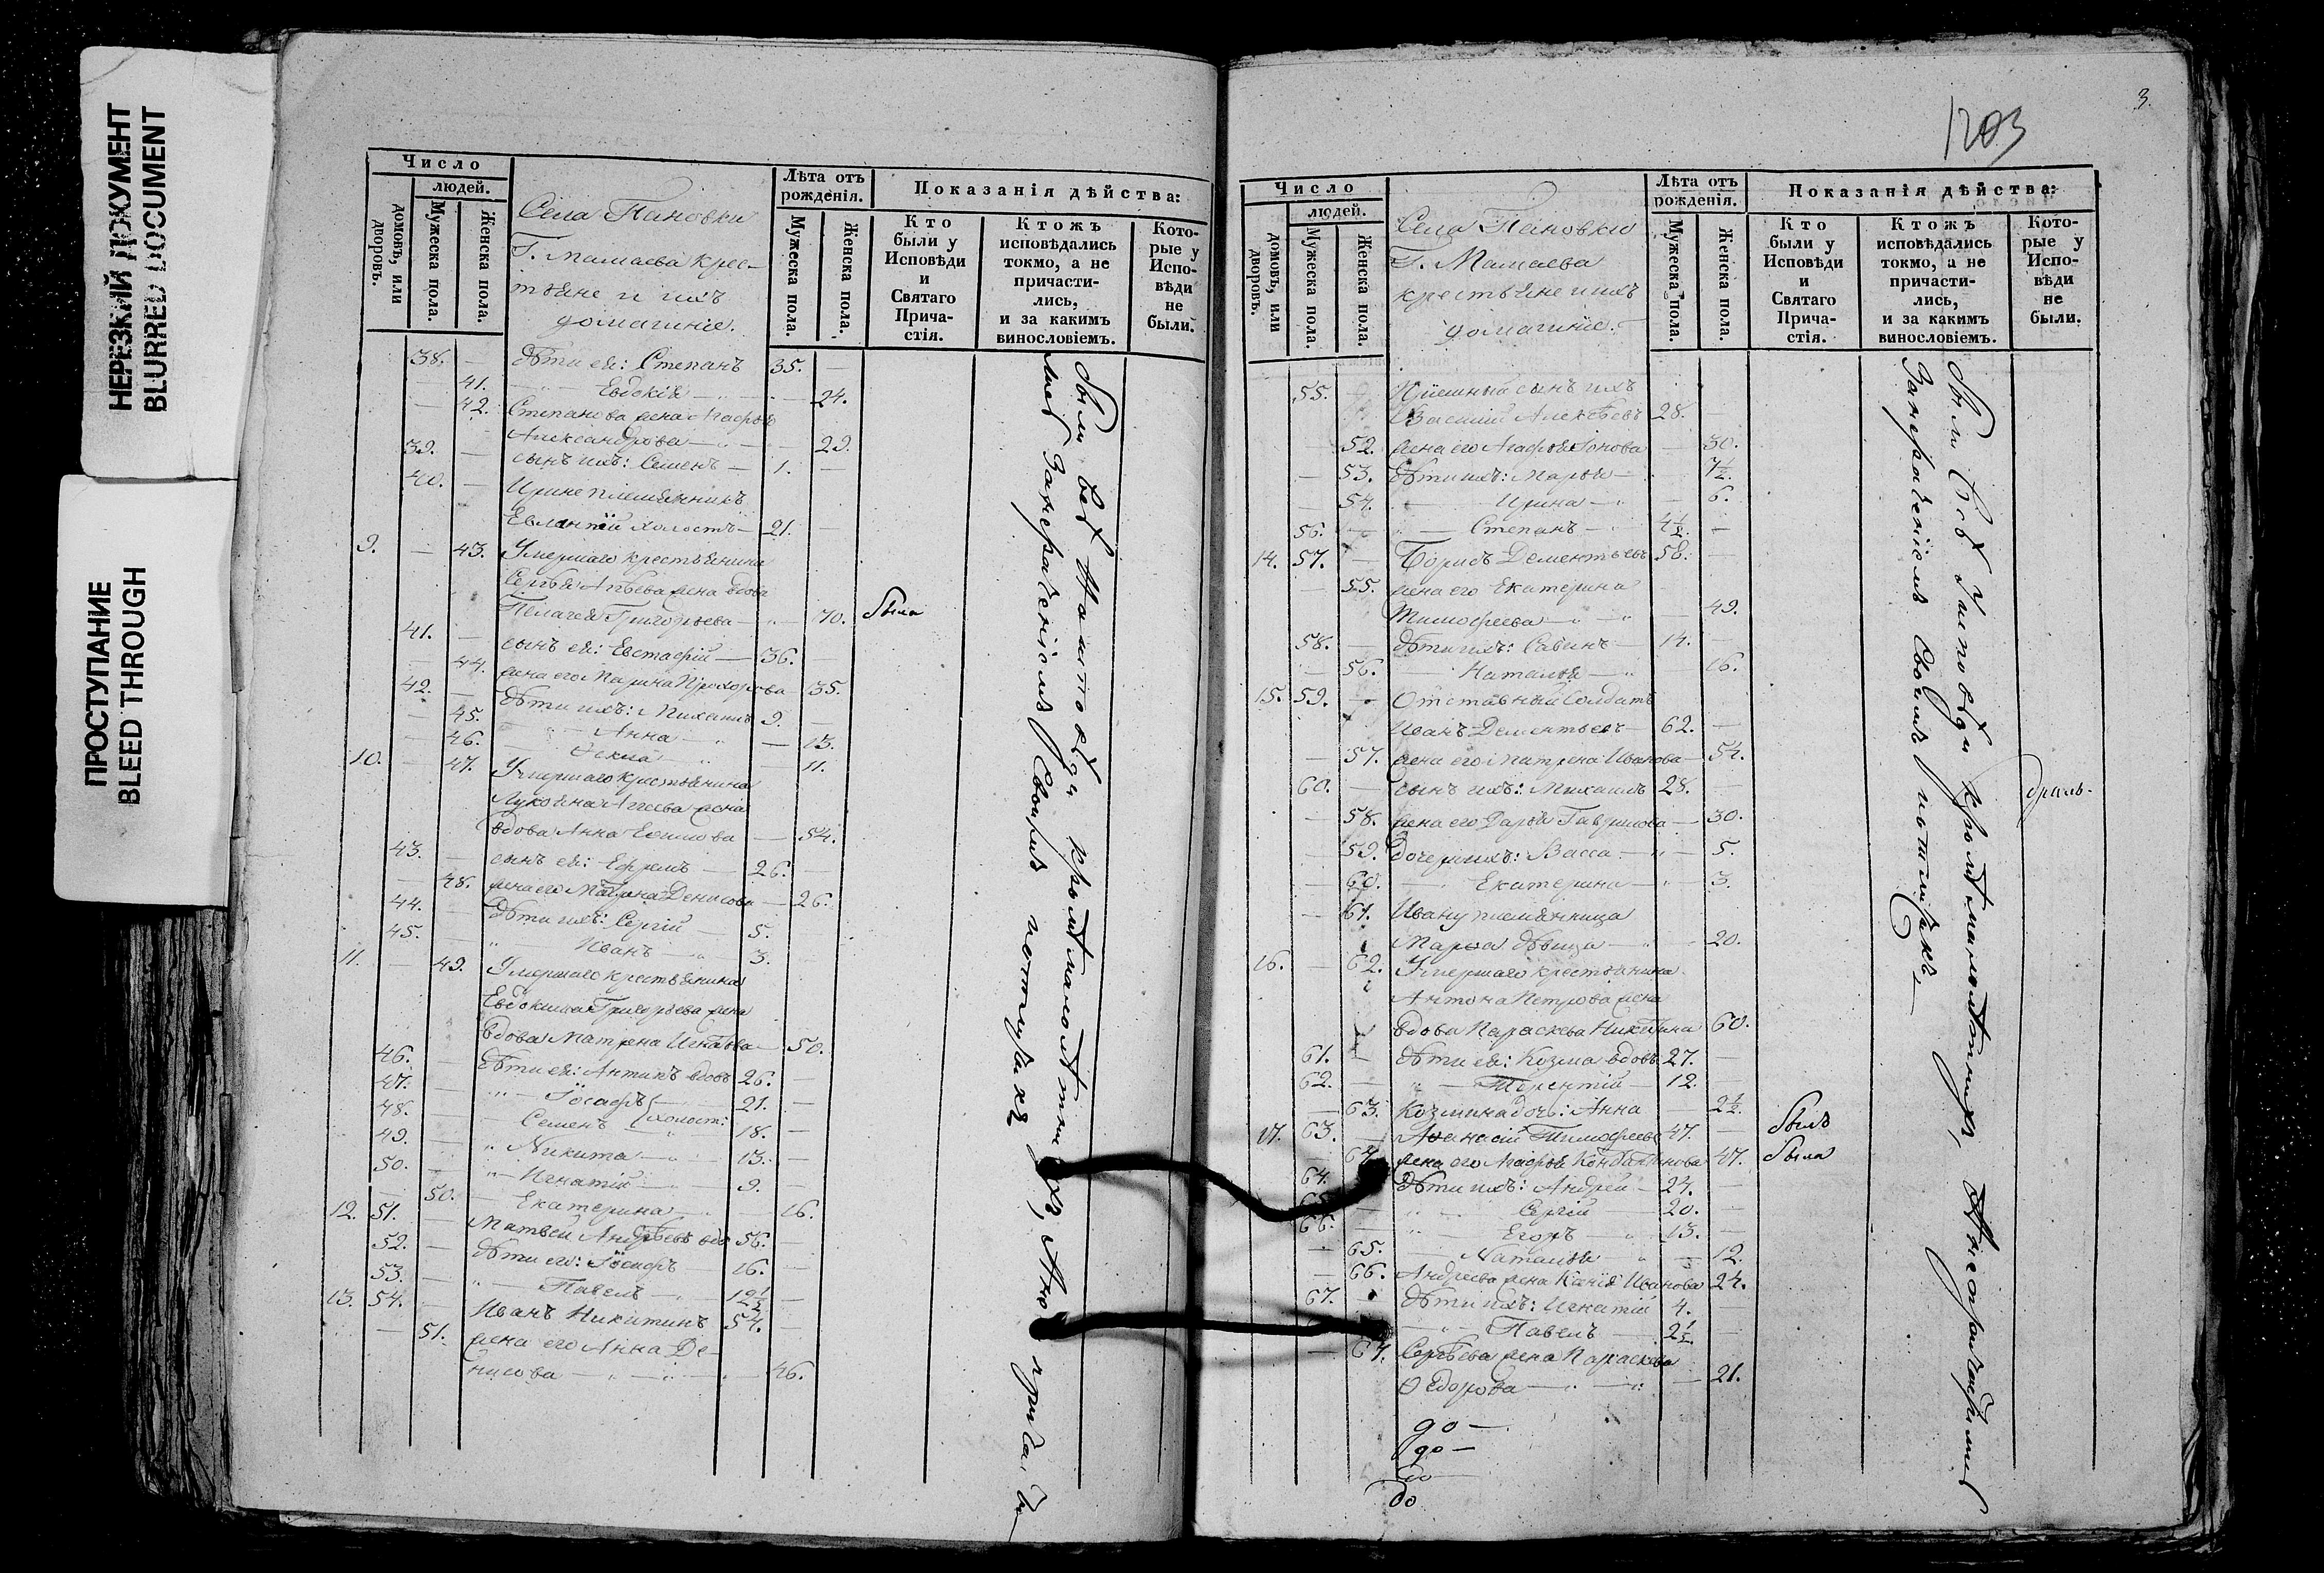 НЕРЕЗКИЙ ДОКУМЕНТ
BLURRED DOCUMENT
ПРОСТУПАНИЕ
BLEED THROUGH
Число
людей.
домовъ, или дворовъ.
Мужеска пола.
Женска пола.
Села Пановки
Г. Мамаева крес-
тьяне и ихъ
домашніе.
Лѣта отъ рожденія.
Мужеска пола.
Женска пола.
Показанія дѣйства:
Кто были у Исповѣди и Святаго Прича-стія.
Ктожъ исповѣдались токмо, а не причасти-лись, и за какимъ винословіемъ.
Кото-рые у Испо-вѣди не были.
38. — дѣти ея: Степанъ 35. —
— 41. Евдокія — 24.
— 42. Степанова жена Агафья
Александрова — 29.
39. — сынъ ихъ: Семенъ — 1. —
40. — Ирине племянникъ
холостъ — 21. —
9. — 43. Умершаго крестьянина
Сергѣя жена вдова
Пелагея Григорьева — 70. была
41. — сынъ ея: Евстафій — 36. —
— 44. жена его Марина Прохорова 35.
42. — дѣти ихъ: Михаилъ 9. —
— 45. Анна — 13.
— 46. Ѳекла — 11.
10. — 47. Умершаго крестьянина
Лукьяна Агеева жена
вдова Анна — 54.
43. — сынъ ея: Ефремъ — 26. —
— 48. жена его Денисова — 26.
44. — дѣти ихъ: Сергій — 5.
45. — Иванъ — 3.
11. — 49. Умершаго крестьянина
Евдокима Григорьева жена
вдова Матрена — 50.
46. — дѣти ея: Антипъ вдовъ 26. —
47. — Іосафъ — 21. —
48. — Семенъ холост: 18. —
49. — Никита — 13. —
50. — Игнатій — 9. —
— 50. Екатерина — 16.
12. 51. — Матвей Андреевъ вдв 56. —
52. — дѣти его: Іосифъ 16. —
53. — Павелъ — 12½ —
13. 54. — Иванъ Никитинъ 54. —
— 51. жена его Анна Де-
нисова — 46.
были всѣ на исповѣди кромѣ малолѣтнихъ, а не прича-
щались за нерадѣніемъ своимъ
3.
1203
Число
людей.
домовъ, или дворовъ.
Мужеска пола.
Женска пола.
Села Пановки
Г. Мамаева
крестьяне и ихъ
домашніе.
Лѣта отъ рожденія.
Мужеска пола.
Женска пола.
Показанія дѣйства:
Кто были у Исповѣди и Святаго Прича-стія.
Ктожъ исповѣдались токмо, а не причасти-лись, и за какимъ винословіемъ.
Кото-рые у Испо-вѣди не были.
55. — Пріемный сынъ ихъ
Василий Алексѣевъ 28. —
52. жена его Агафья Іонова — 30.
— 53. дѣти ихъ: Марья — 7½.
— 54. Ирина — 6.
56. — Степанъ — 4½. —
14. 57. — Борисъ Дементьевъ 58. —
— 55. жена его Екатерина
Тимофеева — 49.
58. — дѣти ихъ: Савинъ — 14. —
— 56. Наталья — 16.
15. 59. — Отставный солдатъ
Иванъ Дементьевъ — 62. —
— 57. жена его Матрена Иванова — 54.
60. — сынъ ихъ: Михаилъ 28. —
— 58. жена его Дарья Гаврилова — 30.
— 59. дочери ихъ: Васса — 5.
— 60. Екатерина — 3.
— 61. Ивану племянница
Марѳа дѣвица — 20.
16. — 62. Умершаго крестьянина
Антона Петрова жена
вдова Параскева Никитина 60.
61. — дѣти ея: Козма вдовъ 27. —
62. — Терентій — 12. —
— 63. Козмина дочь: Анна — 2½.
17. 63. — Аѳанасій Тимофеевъ 47. — былъ
— 64. жена его Агафья 47. была
64. дѣти ихъ: Андрей — 24. —
65. — Сергій — 20. —
66. — Егоръ — 13. —
— 65. Наталья — 12.
— 66. Андреева жена Ксенія Иванова 24.
67. дѣти ихъ: Игнатій 4. —
Павелъ — 2½ —
— 67. Сергѣева жена Параскева
Ѳедорова — 21.
были всѣ у исповѣди кромѣ малолѣтнихъ, а не
за нерадѣніемъ своимъ